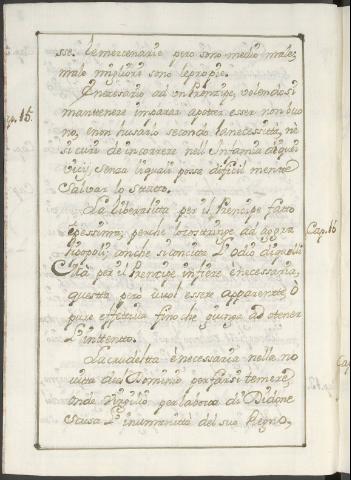 sse. le mercenarie pero sono medio male;
male migliore sono le proprie.
È necesario ad un Prinzipe, volendosi
mantenere imparar a poter esser non buo
no, e non husarlo secondo la necessità, nè
Cap. 15.
si curi de incorrere nell' Infamia de quei
vicij, senza li quali posse difficilmente
salvar lo statto.
La liberalitta per il Prencipe fatto
è pessima; perchè lo costringe ad
Cap. 16
li popoli; con che si concitta l'odio di quelli
Città per il Prencipe inferre è necessaria,
questta però vuol essere apparentte, ò
pure effettiva fino che giunga ad otener
l'inttentto.
La crudeltta è necessaria nella no
vitta del Dominio per farsi temere,
onde Virgilio per la bocca di Didone
scusa l'inumanittà del suo Regno,